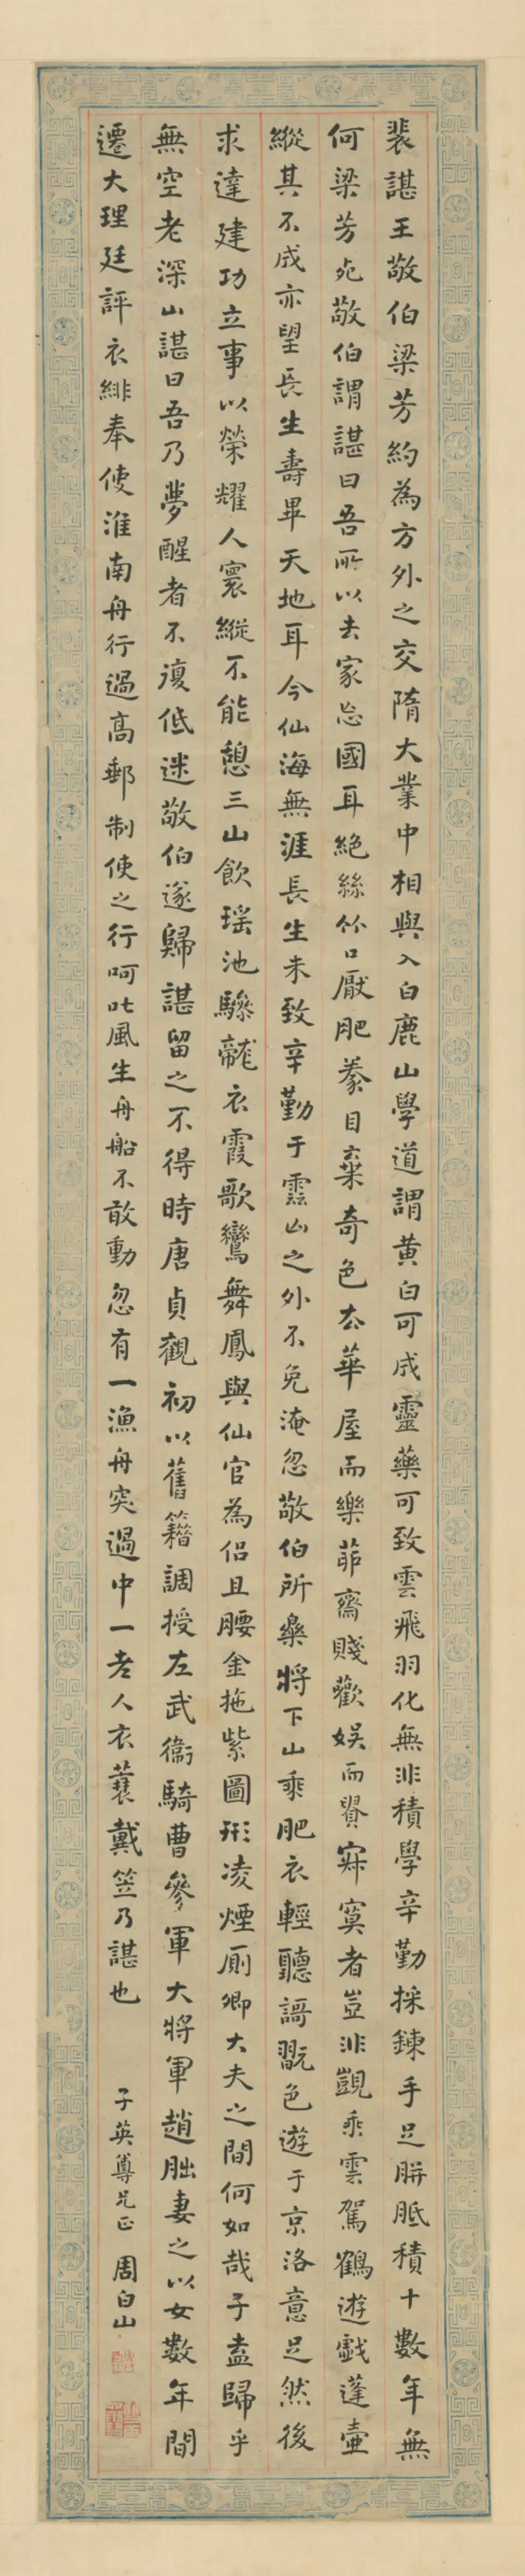 裴諶王敬伯梁芳約為方外之交隋大業中相與入白鹿山學道謂黃白可成靈藥可致雲飛羽化無非積學辛勤採鍊手足胼胝積十數年無
何梁芳死敬伯謂諶曰吾所以去家忘國耳絕絲竹口厭肥豢目棄奇色去華屋而樂茆齋賤歡娛而貴寂寞者豈非覬乘雲駕鶴遊戲蓬壺
縱其不成亦望長生壽畢天地耳今仙海無涯長生未致辛勤于雲山之外不免淹忽敬伯所樂將下山乘肥衣輕聽謌翫色遊于京洛意足然後
求達建功立事以榮耀人寰縱不能憩三山飲瑤池驂龍衣霞歌鸞舞鳳與仙官為侶且腰金拖紫圖形凌煙廁卿大夫之間何如哉子盍歸乎
無空老深山諶曰吾乃夢醒者不復低迷敬伯遂歸諶留之不得時唐貞觀初以舊籍調授左武衛騎曹參軍大將軍趙朏妻之以女數年間
遷大理廷評衣緋奉使淮南舟行過高郵制使之行呵叱風生舟船不敢動忽有一漁舟突過中一老人衣蓑戴笠乃諶也
子英尊兄正 周白山